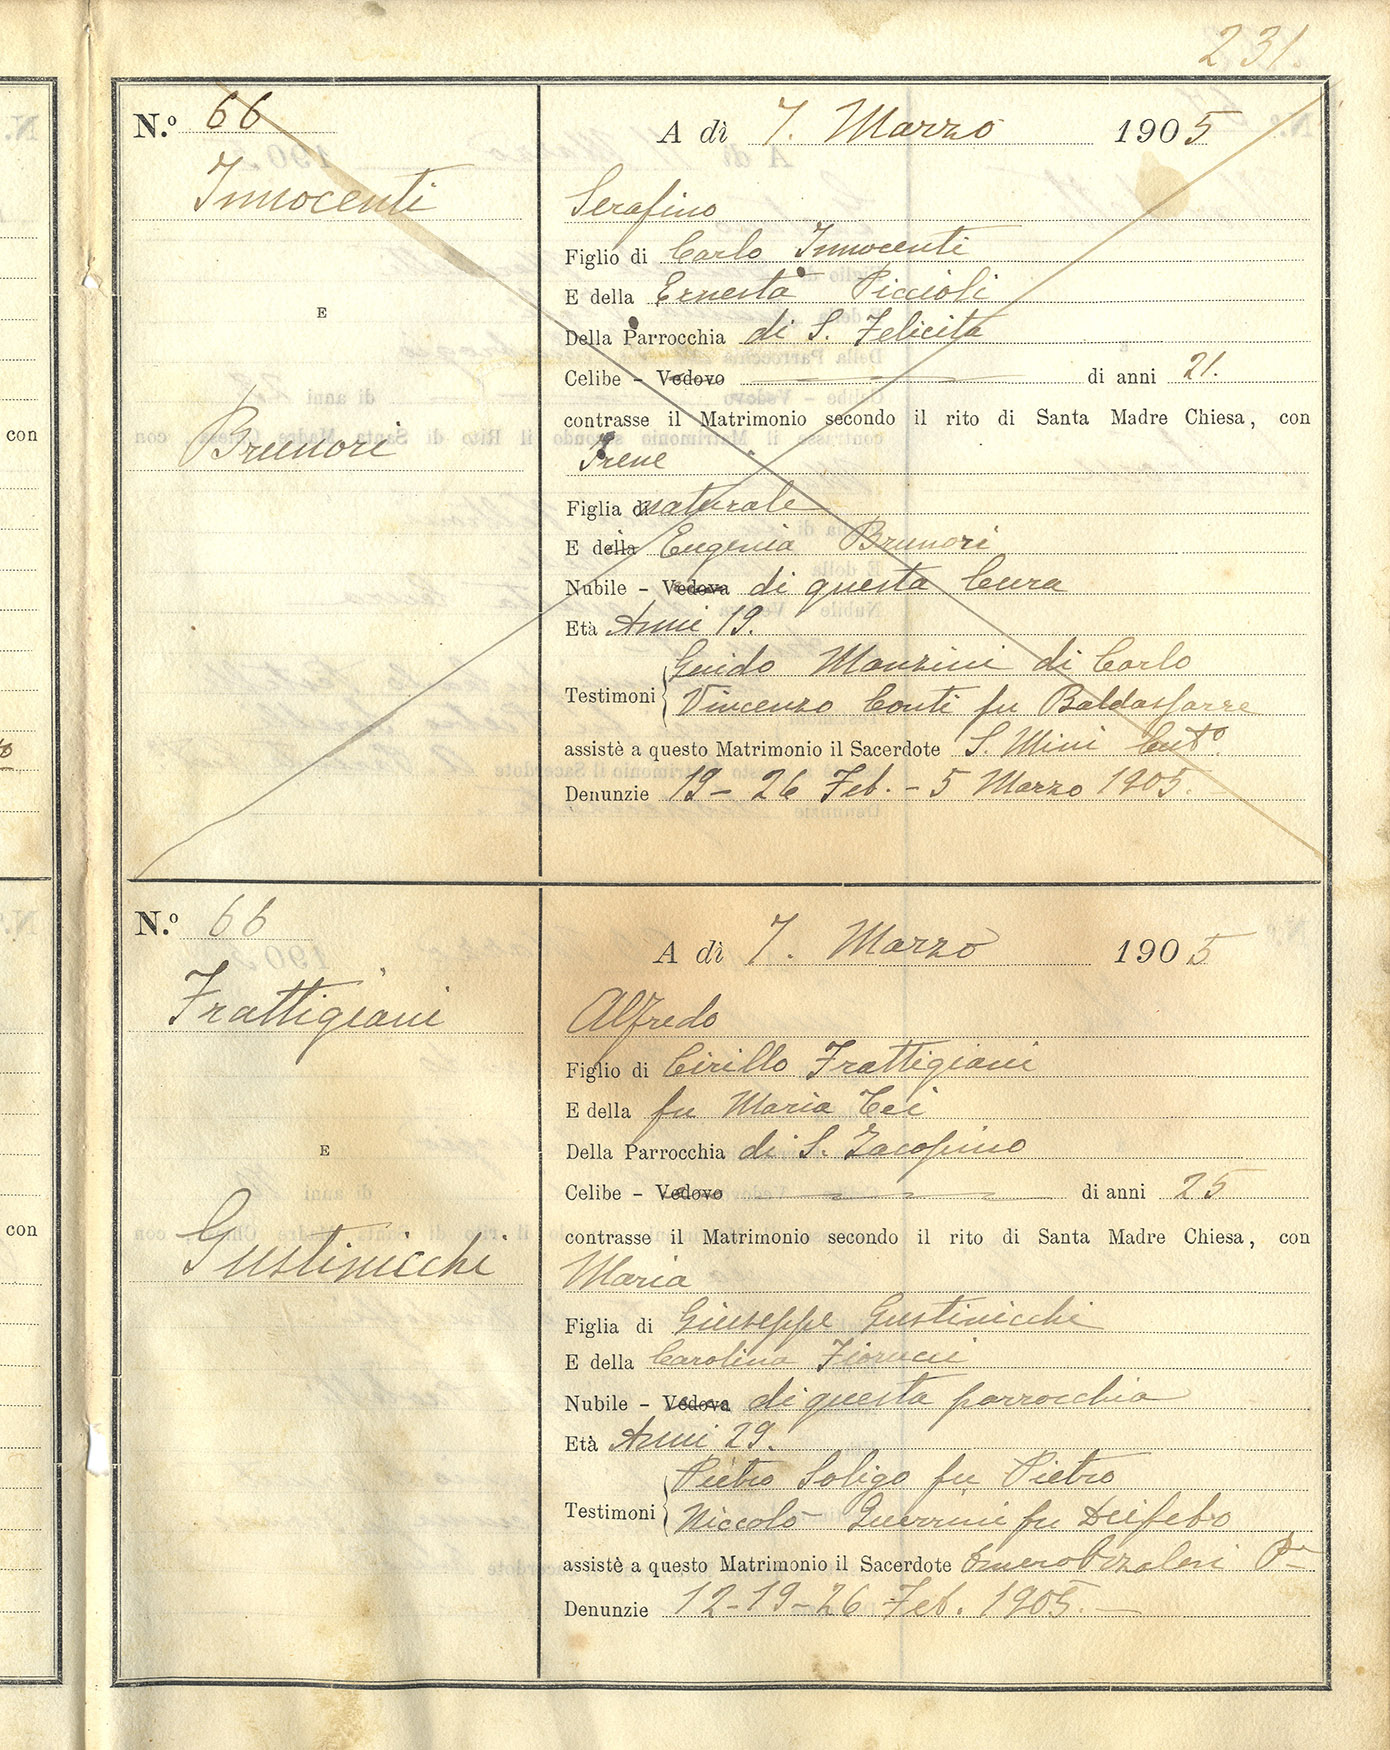 231.
N.º 66
Innocenti
E
Brunori
A dì 7. Marzo 1905
Serafino
Figlio di Carlo Innocenti
E della Ernesta Piccioli
Della Parrocchia di S. Felicita
Celibe - Vedovo di anni 21.
contrasse il Matrimonio secondo il rito di Santa Madre Chiesa, con
Irene
Figlia di naturale
E della Eugenia Brunori
Nubile - Vedova di questa Cura
Età Anni 19.
Guido Manzini di Carlo
Testimoni
Vincenzo Conti fu Baldassarre
assistè a questo Matrimonio il Sacerdote S. Mini Cut.º
Denunzie 19 - 26 Feb. - 5 Marzo 1905.
con
N.º 66
Frattigiani
E
Giustinicchi
A dì 7. Marzo 1905
Alfredo
Figlio di Cirillo Frattigiani
E della fu Maria Cei
Della Parrocchia di S. Jacopino
Celibe - Vedovo di anni 25
contrasse il Matrimonio secondo il rito di Santa Madre Chiesa, con
Maria
Figlia di Giuseppe Giustinicchi
E della Carolina Fiorucci
Nubile - Vedova di questa parrocchia
Età Anni 29.
Pietro Soligo fu Pietro
Testimoni
Niccolò Guerrini fu Deifebo
assistè a questo Matrimonio il Sacerdote
Denunzie 12-19-26 Feb. 1905.
con